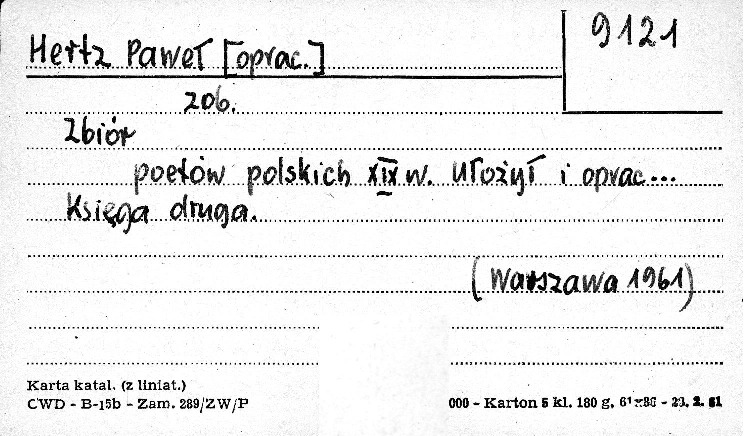 Hertz Paweł [oprac.]
9121
zob.
Zbiór
poetów polskich XIX w. Ułożył i oprac...
Księga druga.
(Warszawa 1961)
Karta katal. (z liniat.)
CWD - B-15b - Zam. 289/ZW/P
000 - Karton 5 kl. 180 g. 61x86 - 2. 61